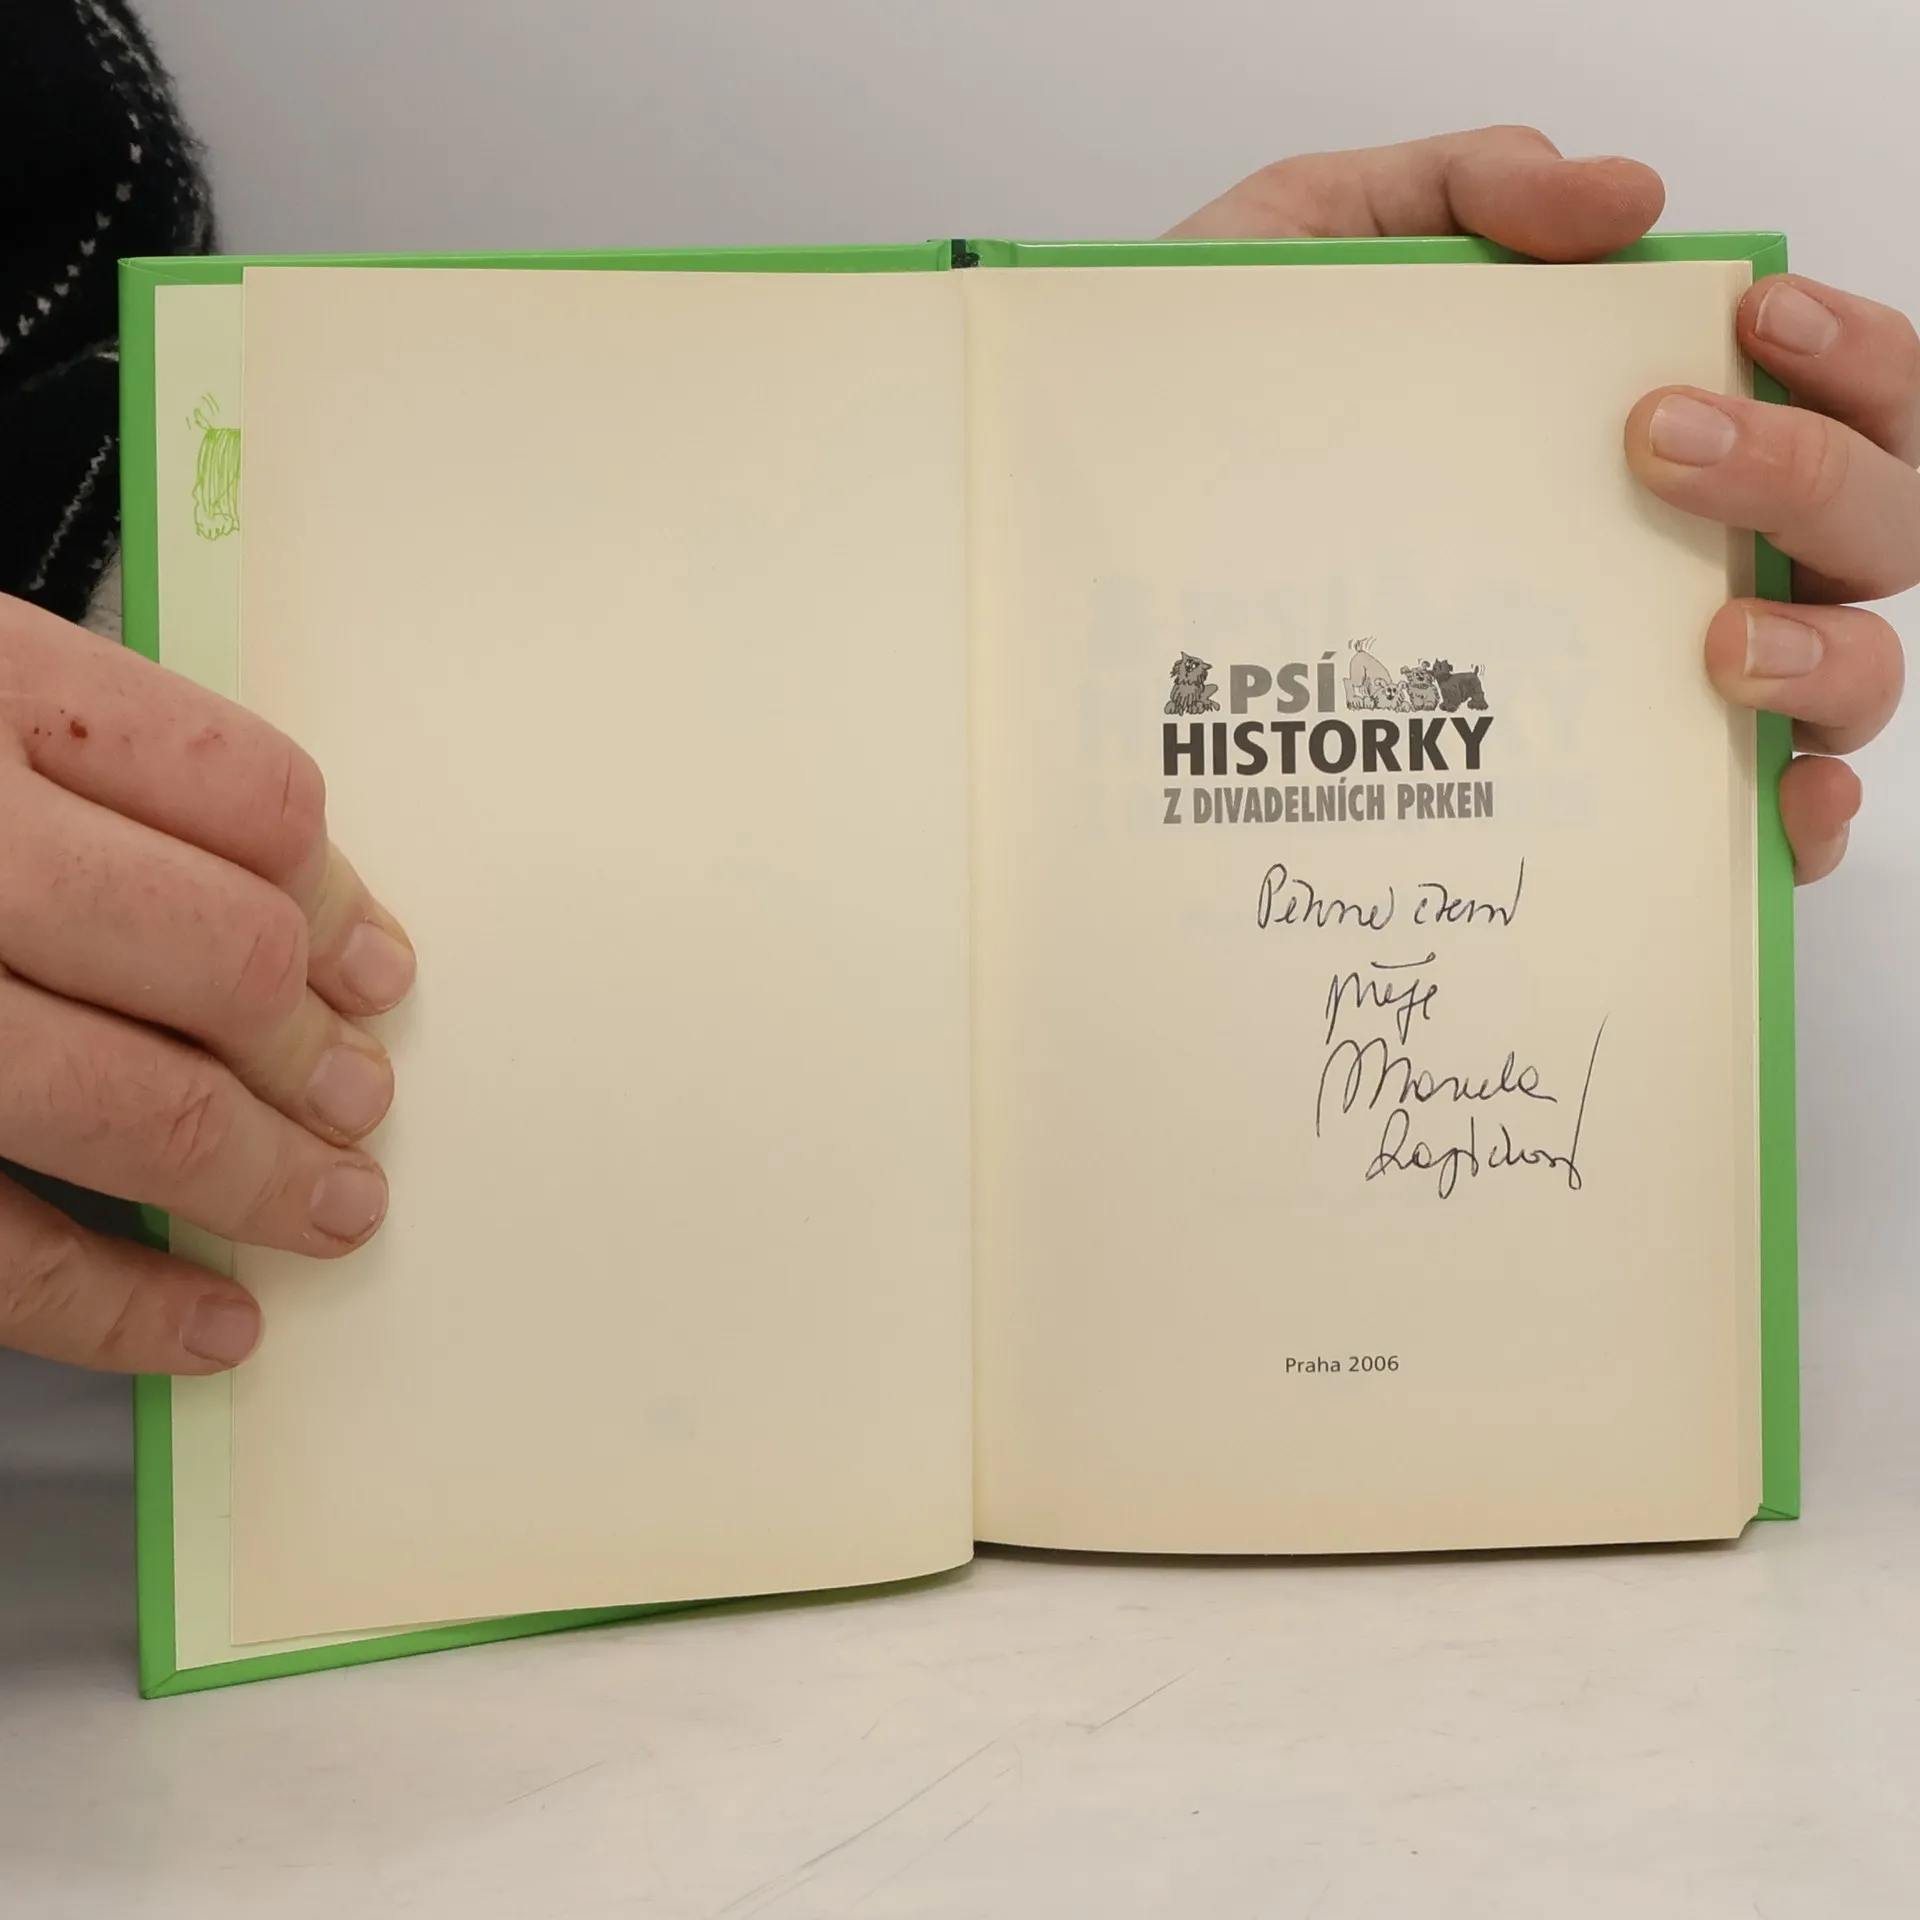 PSÍ
HISTORKY
Z DIVADELNÍCH PRKEN
Pěkné čtení
přeje
Marcela
Praha 2006